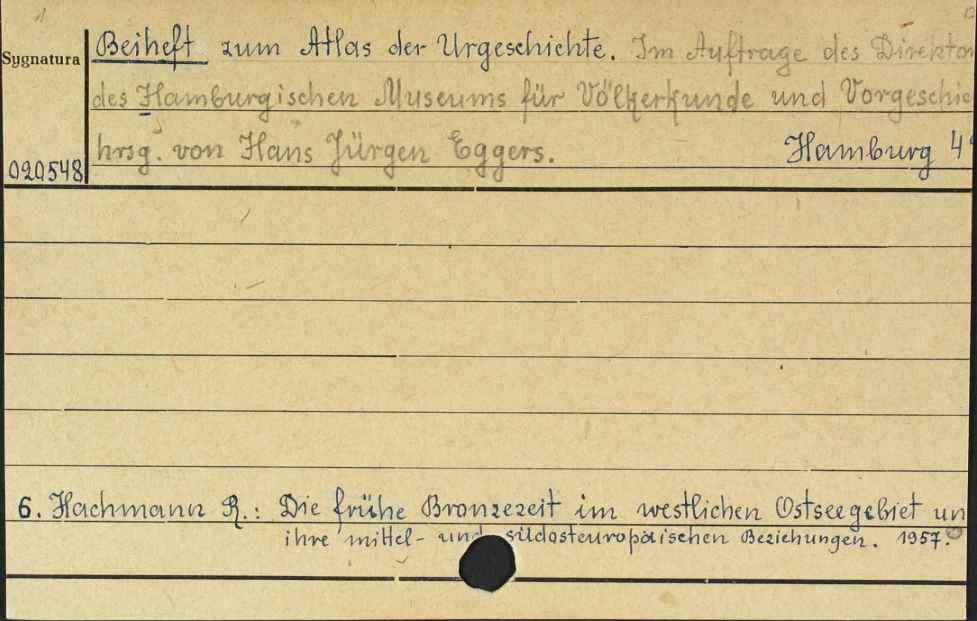 Sygnatura
020548
Beiheft zum Atlas der Urgeschichte. Im Auftrage des Direkto
des Hamburgischen Museums für Völkerkunde und Vorgeschic
hrsg. von Hans Jürgen Eggers. Hamburg 4°
6. Hachmann R.: Die frühe Bronzezeit im westlichen Ostseegebiet un
ihre mittel- und südosteuropäischen Beziehungen. 1957.